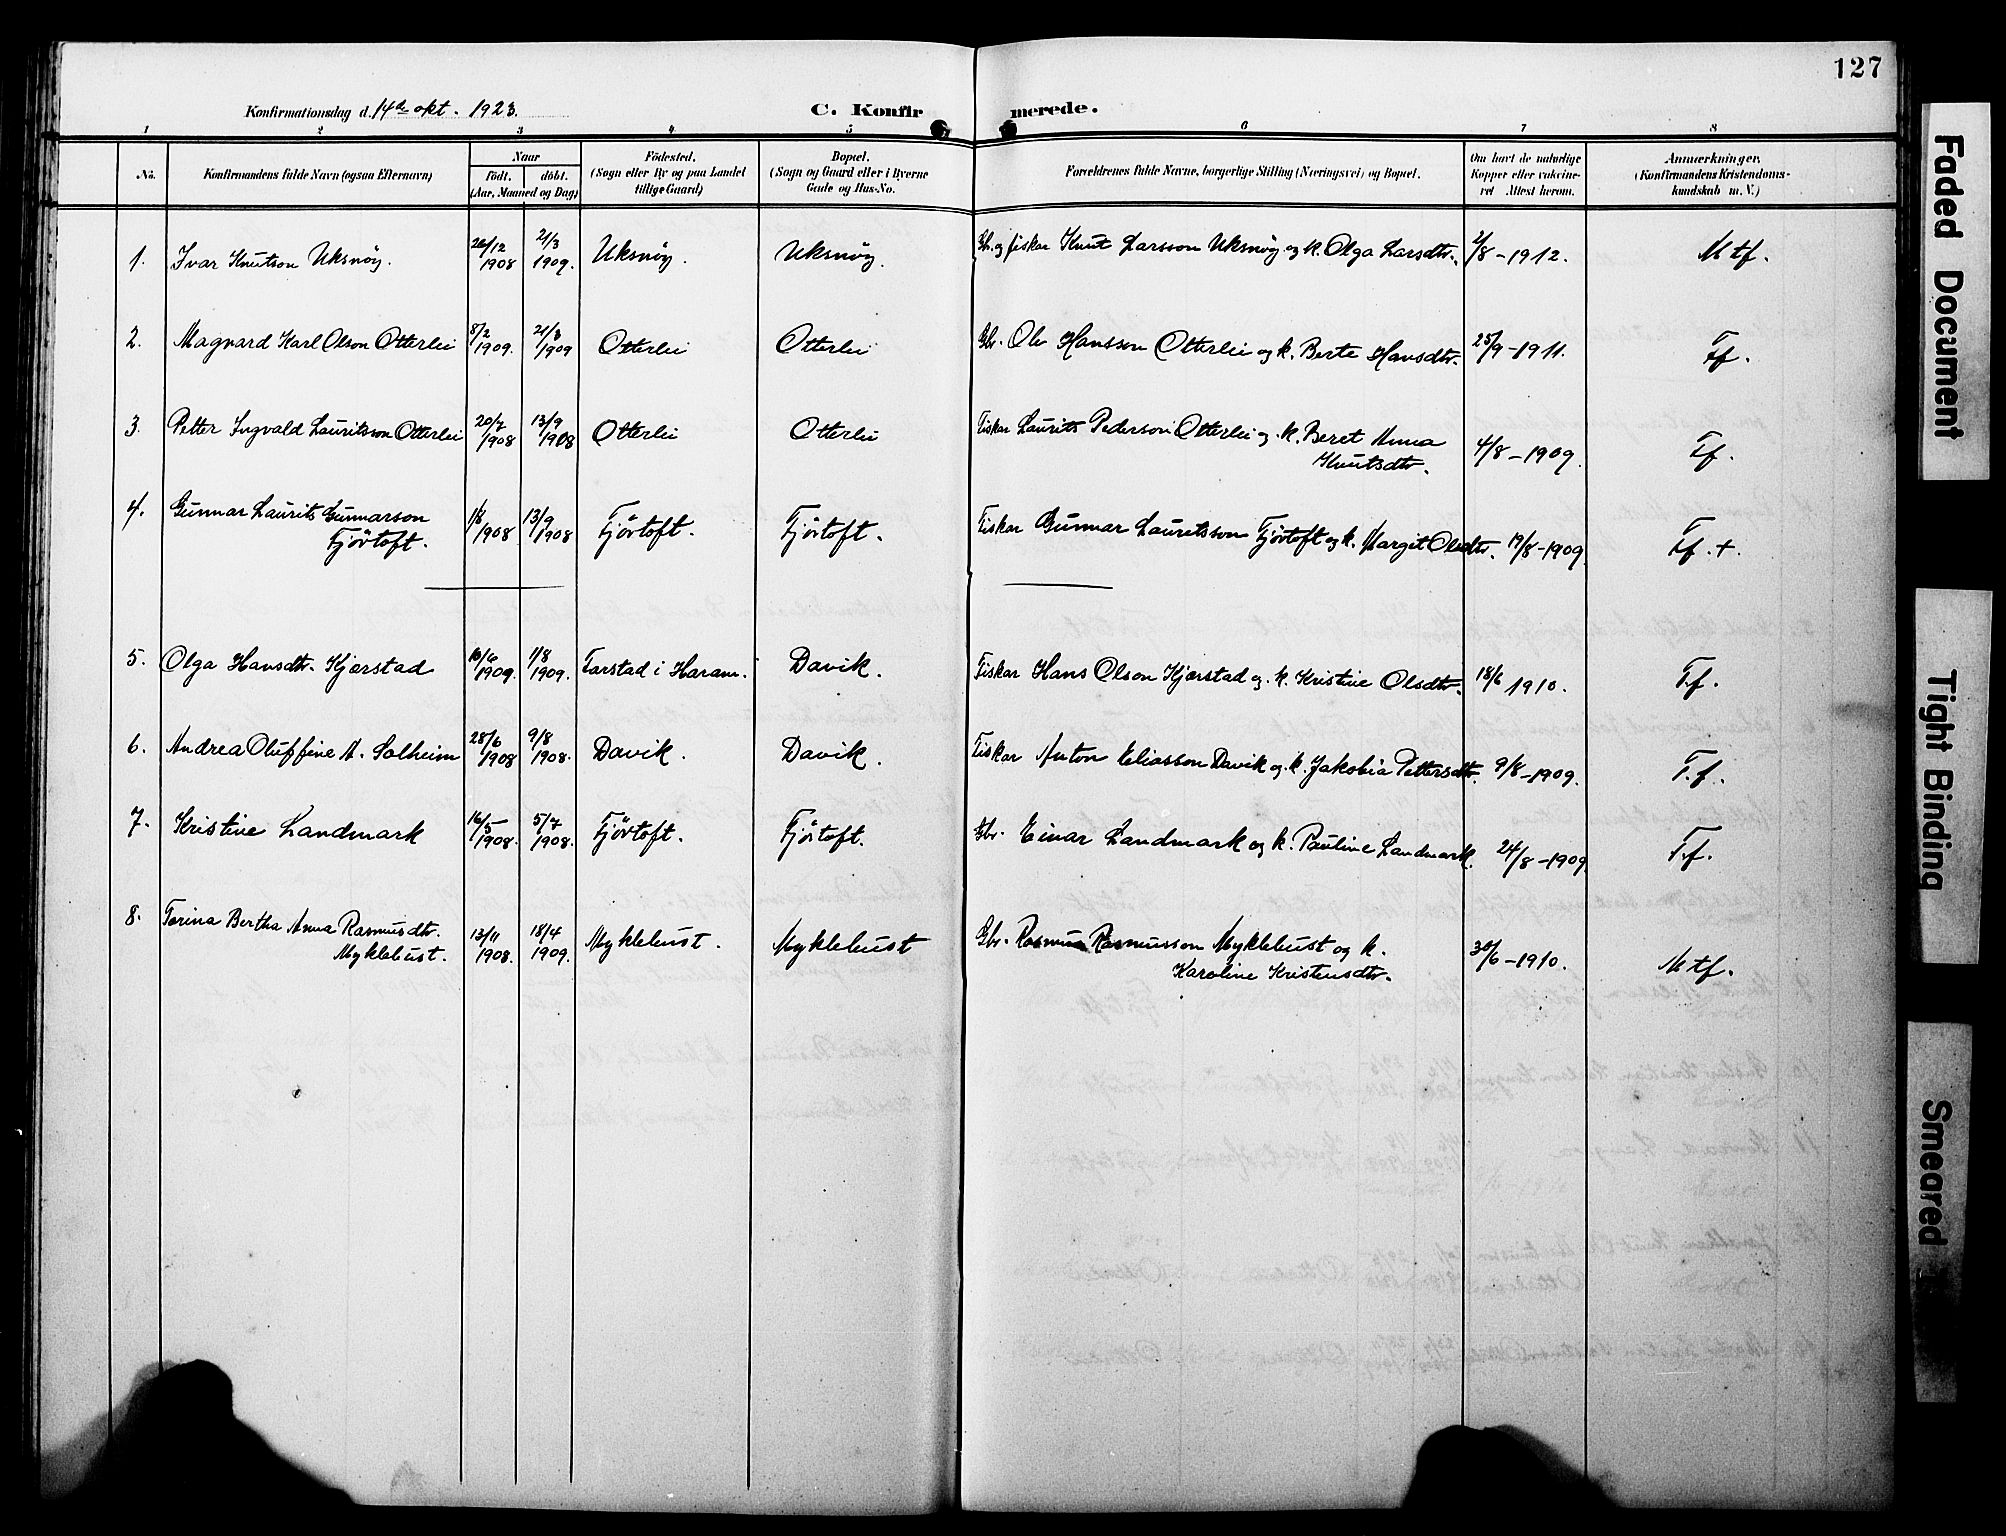 127
Konfirmationsdag d. 14de okt. 1923.
C. Konfirmerede.
1 2 3 4 5 6 7 8
No.
Konfirmandens fulde Navn (ogsaa Efternavn)
Naar
født. døbt.
(Aar, Maaned og Dag)
Fødested.
(Sogn eller By og paa Landet
tillige Gaard)
Bopæl.
(Sogn og Gaard eller i Byerne
Gade og Hus-No.
Forældrenes fulde Navne, borgerlige Stilling (Næringsvei) og Bopæl.
Om havt de naturlige
Kopper eller vakcine-
ret Attest herom.
Anmærkninger.
(Konfirmandens Kristendoms-
kundskab m. V.)
1. Ivar Knutson Uksnøy. 26/12 1908 21/3 1909. Uksnøy. Uksnøy. Gb. og fiskar Knut Larsson Uksnøy og k. Olga Larsdtr. 2/8-1912. Mtf.
2. Magnard Karl Olson Otterlei 8/2 1909. 21/3 1909 Otterlei Otterlei Gbr. Ole Hansson Otterlei og k. Berte Hansdtr. 25/9-1911. Tf.
3. Petter Ingvald Lauritsson Otterlei 20/7 1908 13/9 1908 Otterlei Otterlei Fiskar Laurits Pederson Otterlei og k. Beret Anna
Knutsdtr. 4/8-1909. Tf.
4. Gunnar Laurits Gunnarson
Fjörtoft. 1/8 1908 13/9 1908 Fjörtoft. Fjörtoft. Fiskar Gunnar Lauritsson Fjörtoft og k. Margit Olsdtr. 19/8-1909. Tf. +.
5. Olga Hansdtr. Kjærstad 10/6 1909. 1/8 1909. Farstad i Haram. Davik. Fiskar Hans Olson Kjærstad og k. Kristine Olsdtr. 18/6 1910. Tf.
6. Andrea Oluffine A. Solheim 28/6 1908 9/8 1908. Davik. Davik. Fiskar Anton Eliasson Davik og k. Jakobia Pettersdtr. 9/8-1909. T.f.
7. Kristine Landmark 16/5 1908. 5/7 1908. Fjörtoft. Fjörtoft. Gbr. Einar Landmark og k. Pauline Landmark. 24/8-1909 Tf.
8. Torina Bertha Anna Rasmusdtr.
Myklebust. 13/11 1908. 18/4 1909. Myklebust. Myklebust Gbr. Rasmus Rasmusson Myklebust og k.
Karoline Kristensdtr. 30/6-1910. Mtf.
Faded Document
Tight Binding
Smeared